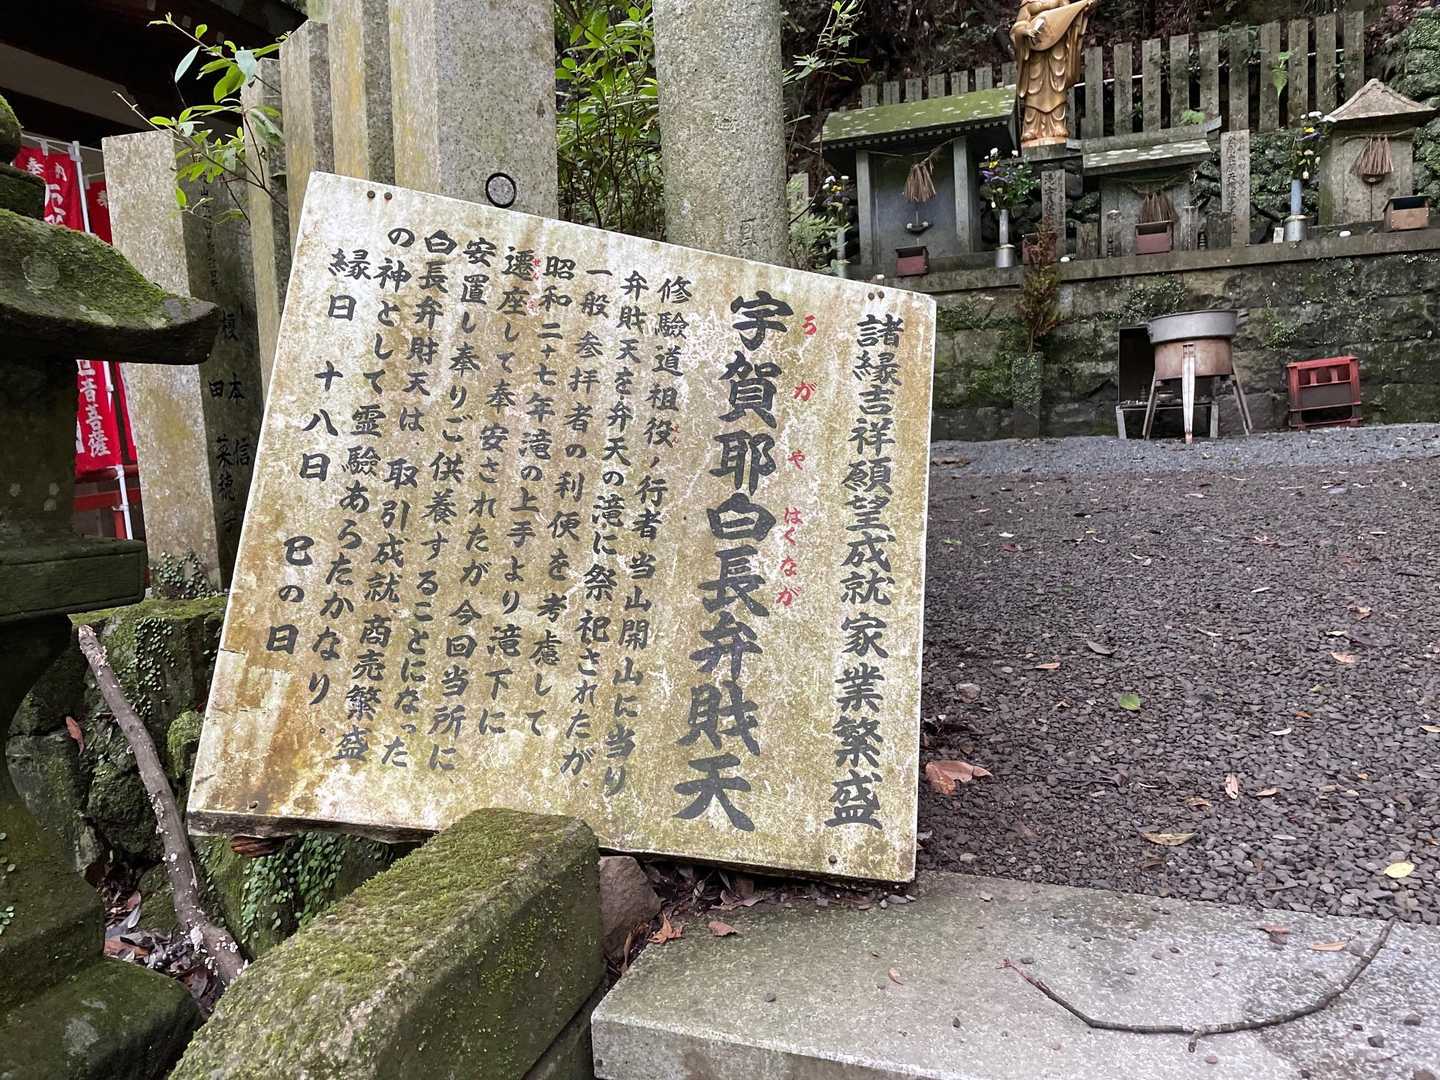 諸縁吉祥願望成就家業繁盛
うがやはくなが
宇賀耶白長弁財天
修験道祖役ノ行者当山開山に当り
弁財天を弁天の滝に祭祀されたが、
一般参拝者の利便を考慮して
昭和二十七年滝の上手より滝下に
せんざ
遷座して奉安されたが今回当所に
安置し奉りご供養することになった
白長弁財天は、取引成就、商売繁盛
の神として霊験あらたかなり。
縁日 十八日 巳の日